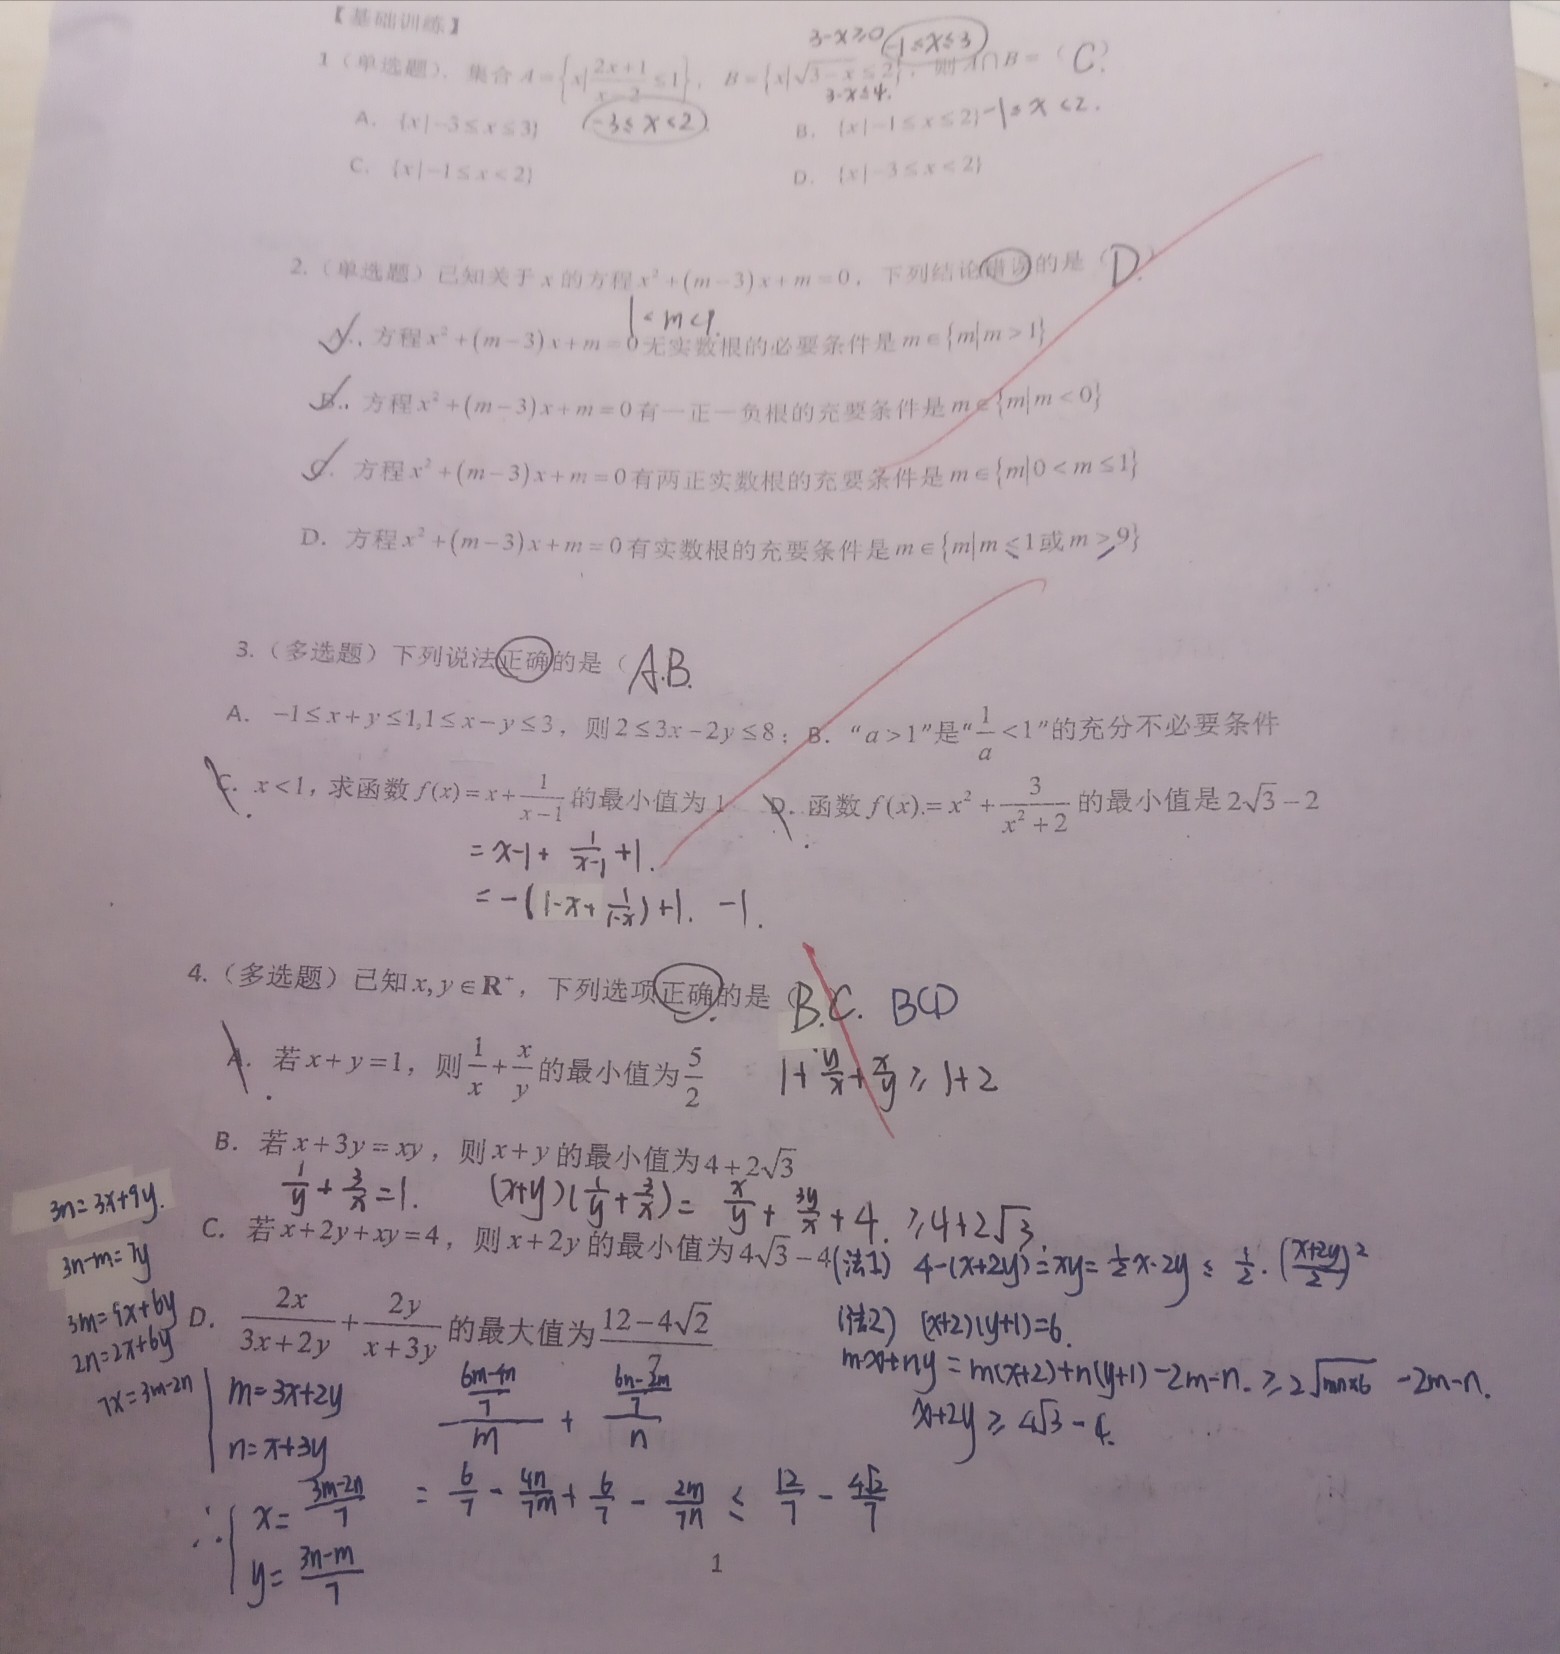 【基础训练】
3-x≥0 -1≤x≤3
1 (单选题). 集合 A={x|(2x+1)/(x-2)≤1}, B={x|√(3-x)≤2}, 则 A∩B=( C.
3-x≤4.
A. {x|-3≤x≤3} -3≤x<2 B. {x|-1≤x≤2} -1≤x<2.
C. {x|-1≤x<2} D. {x|-3≤x<2}
2.(单选题)已知关于 x 的方程 x²+(m-3)x+m=0, 下列结论错误的是( D.
1<m<9.
A. 方程 x²+(m-3)x+m=0 无实数根的必要条件是 m∈{m|m>1}
B. 方程 x²+(m-3)x+m=0 有一正一负根的充要条件是 m∈{m|m<0}
C. 方程 x²+(m-3)x+m=0 有两正实数根的充要条件是 m∈{m|0<m≤1}
D. 方程 x²+(m-3)x+m=0 有实数根的充要条件是 m∈{m|m≤1或m≥9}
3.(多选题)下列说法正确的是( A.B.
A. -1≤x+y≤1,1≤x-y≤3, 则 2≤3x-2y≤8; B. “a>1”是“1/a<1”的充分不必要条件
C. x<1, 求函数 f(x)=x+1/(x-1) 的最小值为 1 D. 函数 f(x)=x²+3/(x²+2) 的最小值是 2√3-2
=x-1+1/(x-1)+1.
=-(1-x+1/(1-x))+1. -1.
4.(多选题)已知 x,y∈R⁺, 下列选项正确的是( B.C. BCD
A. 若 x+y=1, 则 1/x+x/y 的最小值为 5/2 1+y/x+x/y≥1+2
B. 若 x+3y=xy, 则 x+y 的最小值为 4+2√3
1/y+3/x=1. (x+y)(1/y+3/x)=x/y+3y/x+4. ≥4+2√3.
3n=3x+9y.
C. 若 x+2y+xy=4, 则 x+2y 的最小值为 4√3-4 (法1) 4-(x+2y)=xy=½x·2y≤½·((x+2y)/2)²
3n-m=7y
(法2) (x+2)(y+1)=6.
3m=9x+6y
D. 2x/(3x+2y)+2y/(x+3y) 的最大值为 (12-4√2)/7
2n=2x+6y
mx+ny=m(x+2)+n(y+1)-2m-n.≥2√(mn×6)-2m-n.
7x=3m-2n
x+2y≥4√3-4.
m=3x+2y
n=x+3y
((6m-4n)/7)/m+((6n-2m)/7)/n
∴ x=(3m-2n)/7
y=(3n-m)/7
=6/7-4n/7m+6/7-2m/7n≤12/7-4√2/7
1